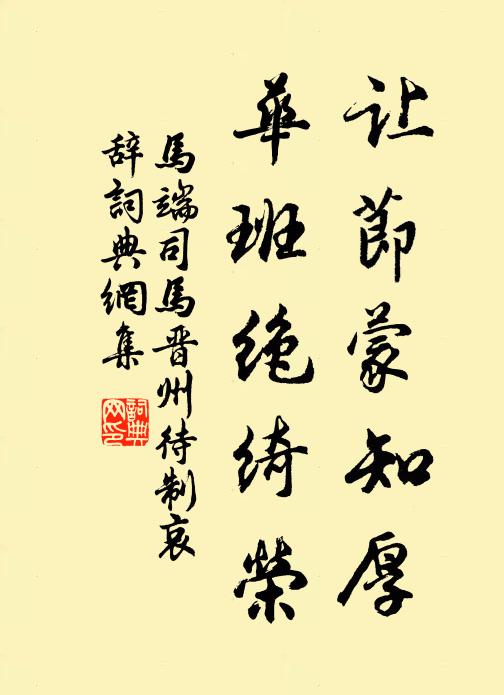 让節蒙知厚
華班絶綺榮
馬端司馬晋州待制哀
辞詞典網集
詞典网印